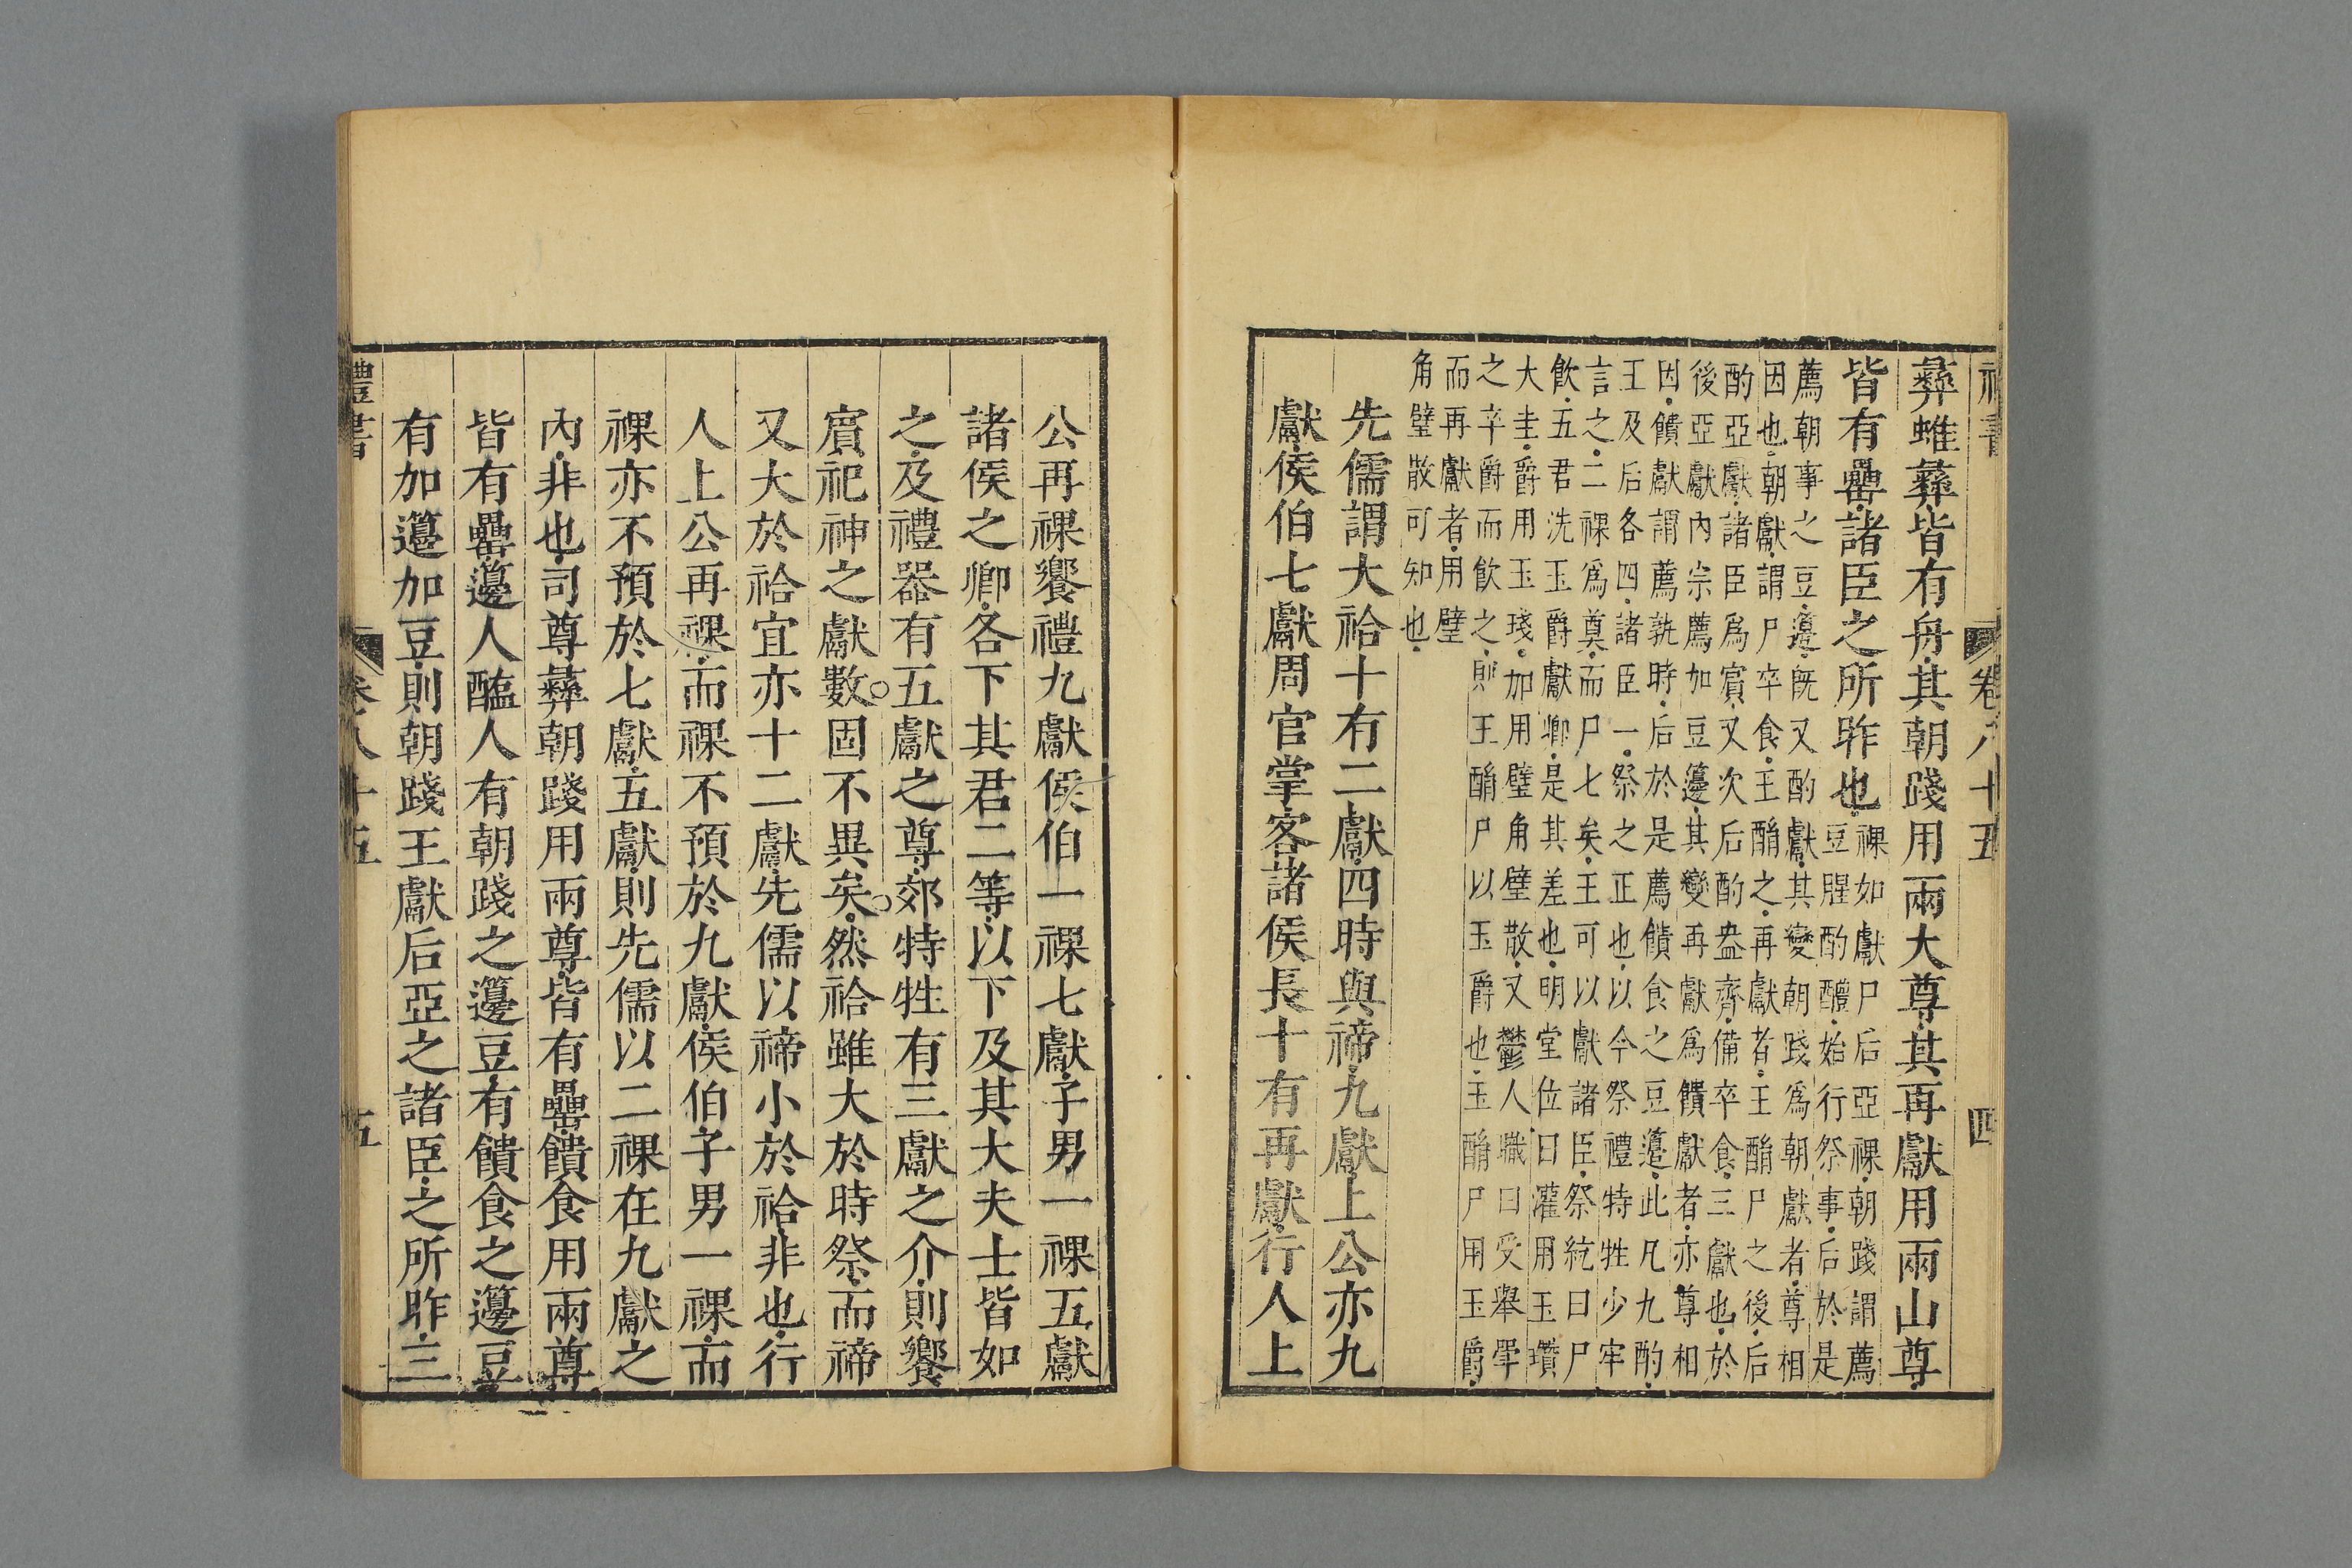 禮書 卷八十五 四
彝蜼彝皆有舟其朝踐用兩大尊其再獻用兩山尊
皆有罍諸臣之所昨也
祼如獻尸后亞祼朝踐謂薦
豆腥酌醴始行祭事后於是
薦朝事之豆籩既又酌獻其變朝踐爲朝獻者尊相
因也朝獻謂尸卒食王酳之再獻者王酳尸之後后
酌亞獻諸臣爲賓又次后酌盎齊備卒食三獻也於
後亞獻內宗薦加豆籩其變再獻爲饋獻者亦尊相
因饋獻謂薦孰時后於是薦饋食之豆籩此凡九酌
王及后各四諸臣一祭之正也以今祭禮特牲少牢
言之二祼爲奠而尸七矣王可以獻諸臣祭統曰尸
飲五君洗玉爵獻卿是其差也明堂位曰灌用玉瓚
大圭爵用玉琖加用璧角璧散又鬱人職曰受舉斝
之卒爵而飲之則王酳尸以玉爵也王酳尸用玉爵
而再獻者用璧
角璧散可知也
先儒謂大祫十有二獻四時與禘九獻上公亦九
獻侯伯七獻周官掌客諸侯長十有再獻行人上
公再祼饗禮九獻侯伯一祼七獻子男一祼五獻
諸侯之卿各下其君二等以下及其大夫士皆如
之及禮器有五獻之尊郊特牲有三獻之介則饗
賓祀神之獻數固不異矣然祫雖大於時祭而禘
又大於祫宜亦十二獻先儒以禘小於祫非也行
人上公再祼而祼不預於九獻侯伯子男一祼而
祼亦不預於七獻五獻則先儒以二祼在九獻之
內非也司尊彝朝踐用兩尊皆有罍饋食用兩尊
皆有罍籩人醢人有朝踐之籩豆有饋食之籩豆
有加籩加豆則朝踐王獻后亞之諸臣之所昨三
禮書 卷八十五 五